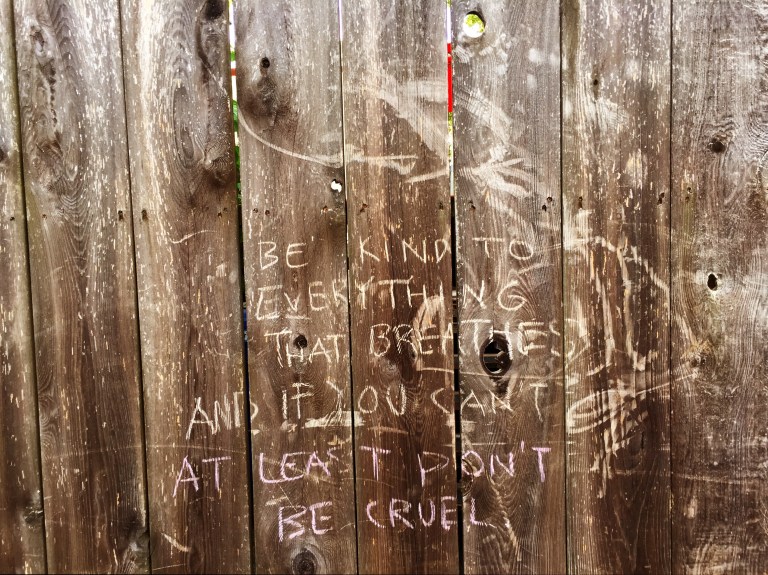 BE KIND TO
EVERYTHING
THAT BREATHES
AND IF YOU CAN'T
AT LEAST DON'T
BE CRUEL